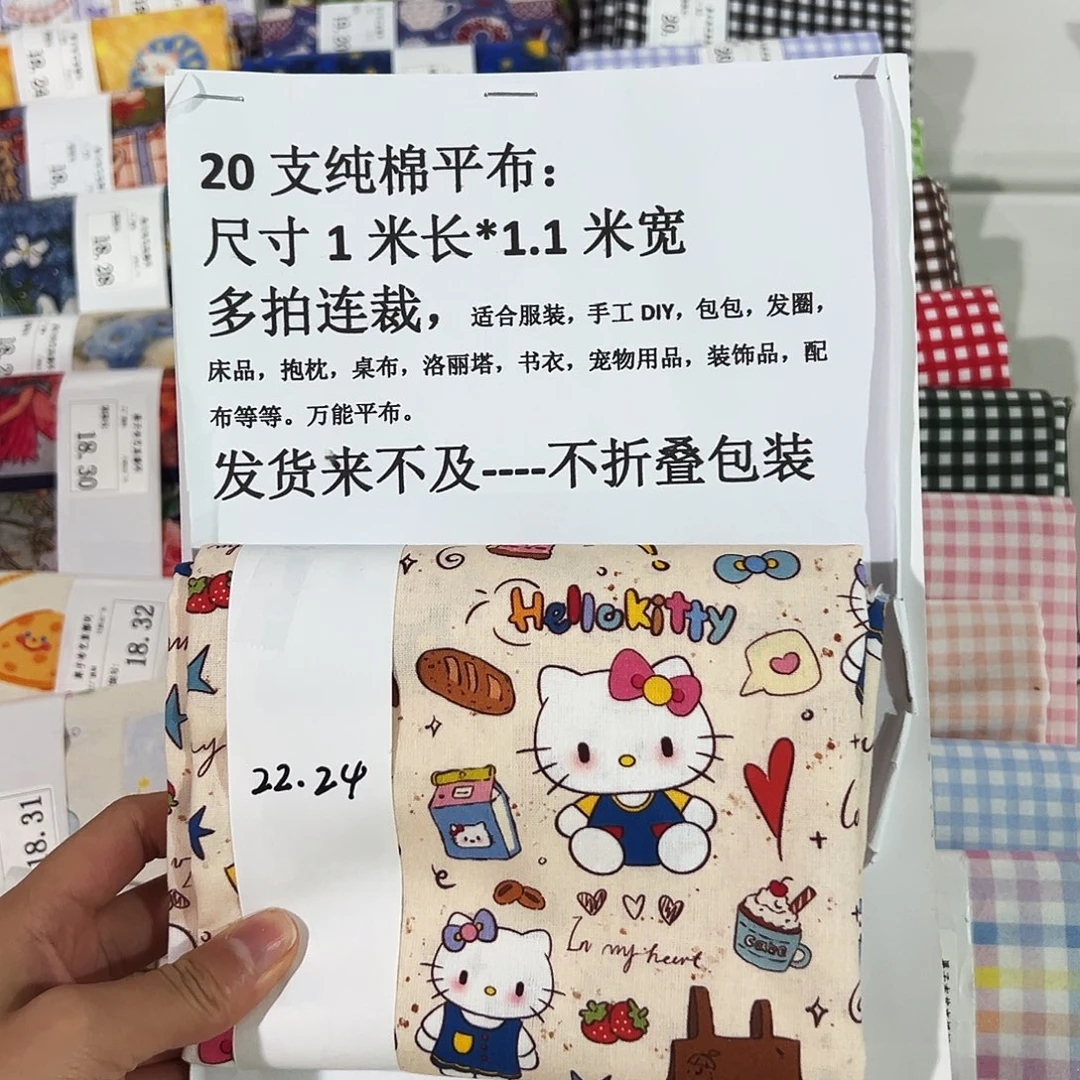 20 支纯棉平布：
尺寸 1 米长*1.1 米宽
多拍连裁，适合服装，手工 DIY，包包，发圈，
床品，抱枕，桌布，洛丽塔，书衣，宠物用品，装饰品，配
布等等。万能平布。
发货来不及----不折叠包装
Hello Kitty
22.24
In my heart
CAKE
18.28
18.30
18.32
18.31